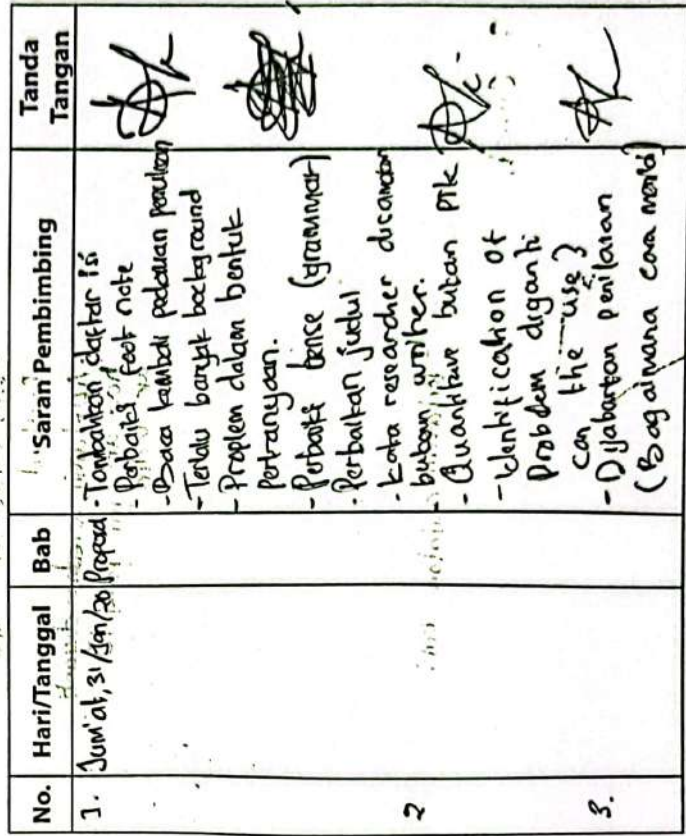 No. Hari/Tanggal Bab Saran Pembimbing Tanda Tangan
1. Jum'at, 31/Jan/20 Proposal - Tambahkan daftar isi
- Perbaiki foot note
- Baca kembali pedoman penulisan
- Terlalu banyak background
- Problem dalam bentuk
pertanyaan.
- Perbaiki tense (grammar)
- Perbaikan judul
- kata researcher dicantumkan
bukan writer.
2 - Quantitave bukan PTK
- Identification of
Problem diganti
can the use?
3. - Dijabarkan penilaian
(Bagaimana cara menilai)